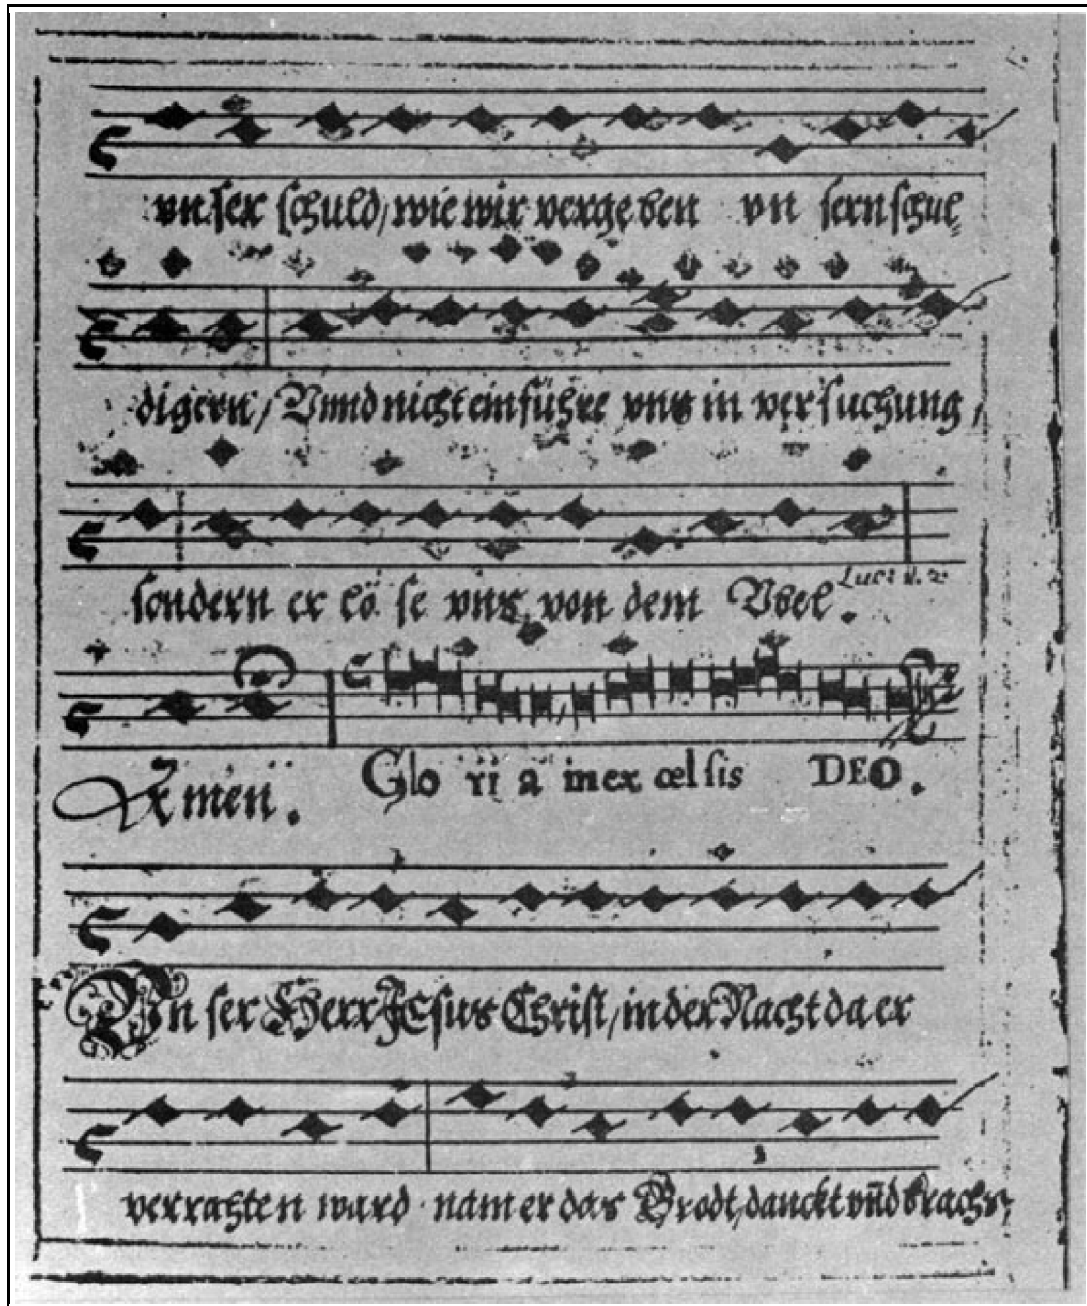 vn ser schuld, wie wir verge ben vn sern schul,
digern, Vnnd nicht einführe vns in versuchung,
sondern er lö se vns von dem Vbel.
Luc: v. 2
Amen. Glo ri a in ex cel sis DEO.
Vn ser Herr JEsus Christ, in der Nacht da er
verrahten ward nam er das Brodt, danckt vnd brachs,